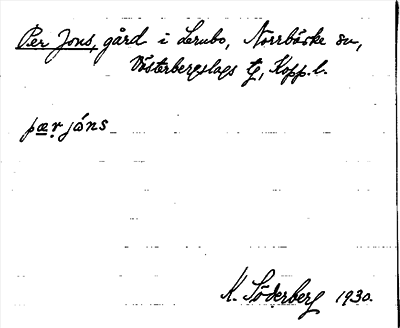 Per Jons, gård i Lernbo, Norrbärke sn,
Västerbergslags tg, Kopp. l.
pær jóns
K. Söderberg 1930.